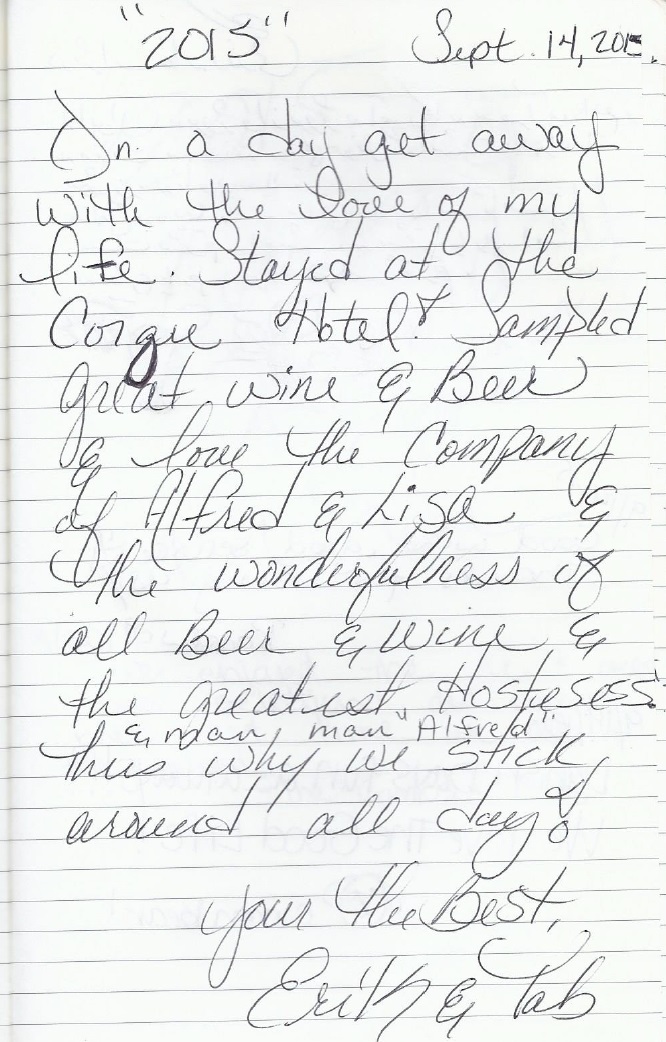 "2015" Sept. 14, 2015.
On a day get away
with the love of my
life. Stayed at the
Corgue Hotel! Sampled
great wine & Beer
& love the Company
of Alfred & Lisa &
the wonderfulness of
all Beer & Wine &
the greatest Hostesess!
& man, man "Alfred"
thus why we stick
around all day!
Your the Best,
Erik & Tab